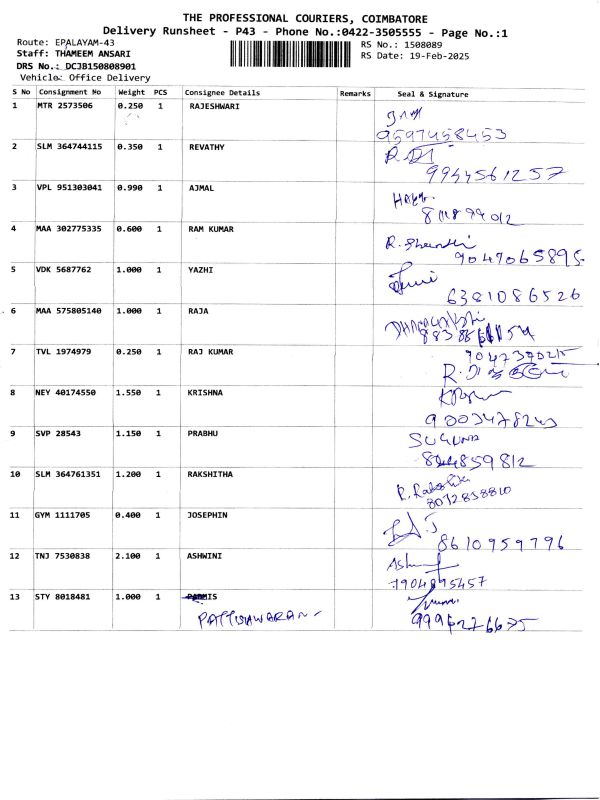 THE PROFESSIONAL COURIERS, COIMBATORE
Delivery Runsheet - P43 - Phone No.:0422-3505555 - Page No.:1
Route: EPALAYAM-43
RS No.: 1508089
Staff: THAMEEM ANSARI
RS Date: 19-Feb-2025
DRS No.: DCJB150808901
Vehicle: Office Delivery
S No Consignment No Weight PCS Consignee Details Remarks Seal & Signature
1 MTR 2573506 0.250 1 RAJESHWARI
9597458453
2 SLM 364744115 0.350 1 REVATHY
9944561257
3 VPL 951303041 0.990 1 AJMAL
4 MAA 302775335 0.600 1 RAM KUMAR
9047065895
5 VDK 5687762 1.000 1 YAZHI
6381086526
6 MAA 575805140 1.000 1 RAJA
7 TVL 1974979 0.250 1 RAJ KUMAR
8 NEY 40174550 1.550 1 KRISHNA
9003478243
9 SVP 28543 1.150 1 PRABHU
SUGUNA
10 SLM 364761351 1.200 1 RAKSHITHA
11 GYM 1111705 0.400 1 JOSEPHIN
8610959796
12 TNJ 7530838 2.100 1 ASHWINI
7904895457
13 STY 8018481 1.000 1
PATTISHWARAN